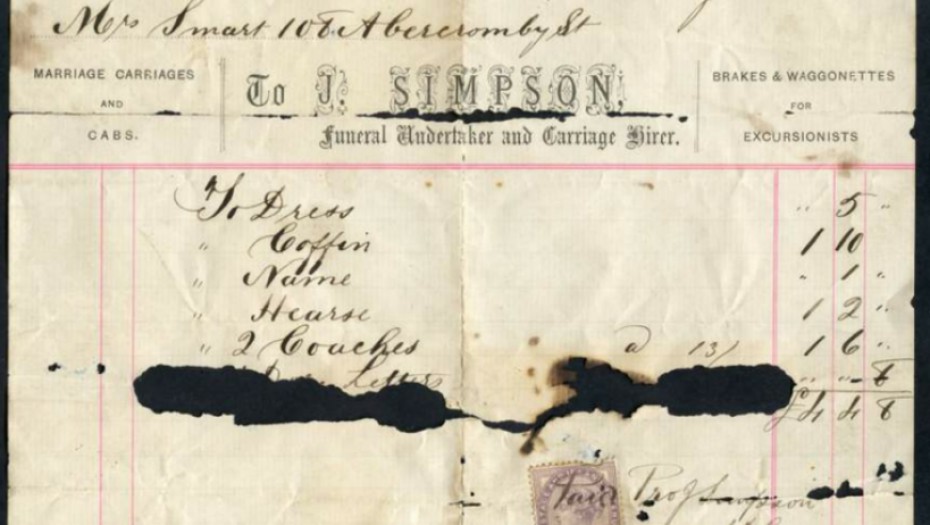 Mrs Smart 108 Abercromby St
MARRIAGE CARRIAGES
AND
CABS.
To J. SIMPSON,
Funeral Undertaker and Carriage Hirer.
BRAKES & WAGGONETTES
FOR
EXCURSIONISTS
To Dress " 5 "
" Coffin 1 10
" Name " 1 "
" Hearse 1 2 "
" 2 Coaches @ 13/ 1 6 "
Letters " " 8
£4 4 8
Paid Prof Simpson